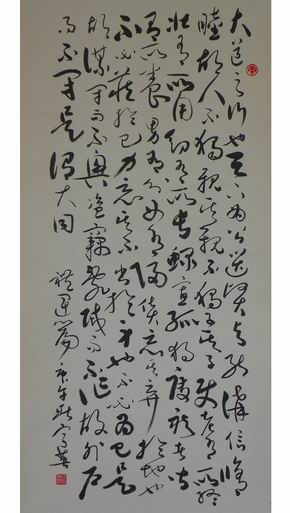 大道之行也天下為公選賢與能講信脩
睦故人不獨親其親不獨子其子使老有所終
壯有所用幼有所長鰥寡孤獨廢疾者皆
有所養男有分女有歸貨惡其棄於地也
不必藏於己力惡其不出於身也不必為己是
故謀閉而不興盜竊亂賊而不作故外戶
而不閉是謂大同
禮運篇 庚午秋